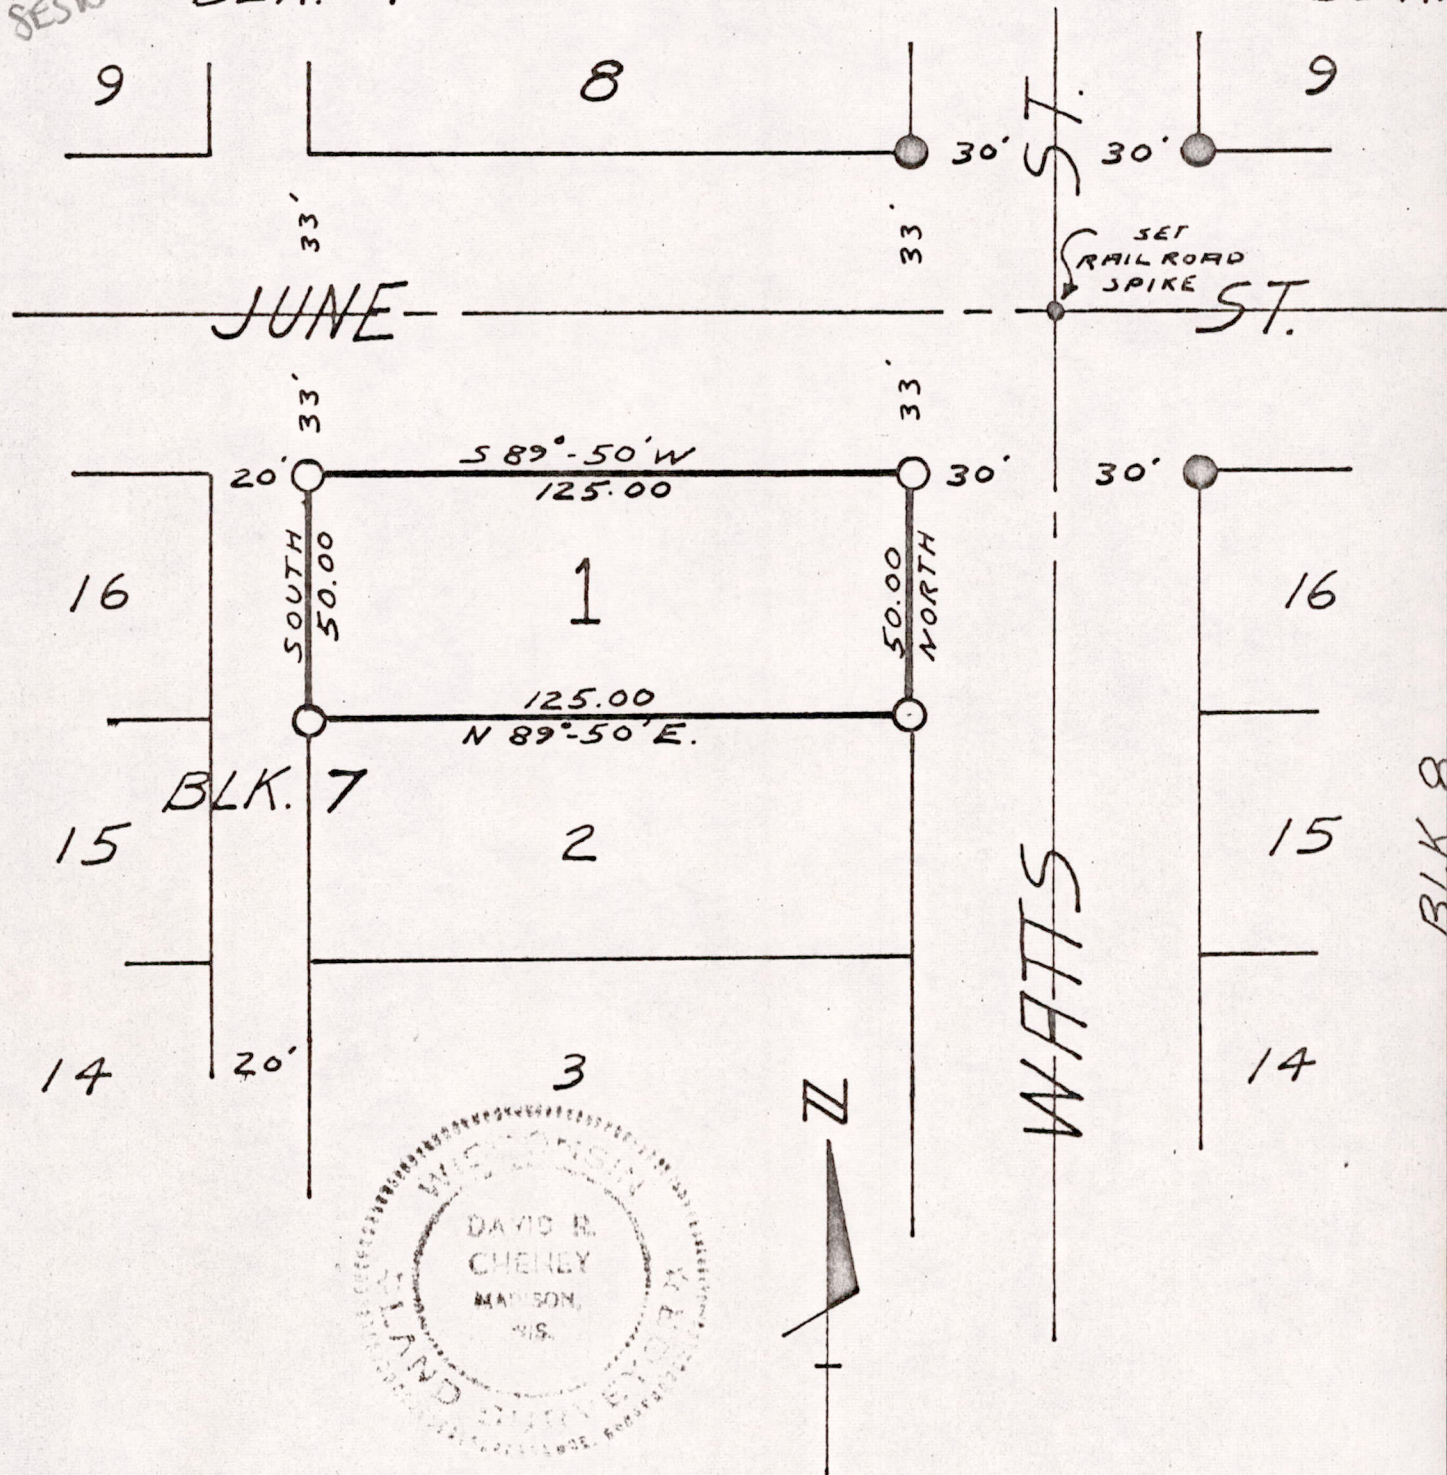 9
8
9
30'
ST.
30'
33'
33'
SET
RAILROAD
SPIKE
JUNE
ST.
33'
33'
20'
S 89°-50' W
125.00
30'
30'
16
SOUTH
50.00
1
50.00
NORTH
16
125.00
N 89°-50' E.
BLK. 7
15
2
15
BLK 8
WATTS
14
20'
3
14
N
WISCONSIN
DAVID R.
CHENEY
MADISON,
WIS.
LAND SURVEYOR